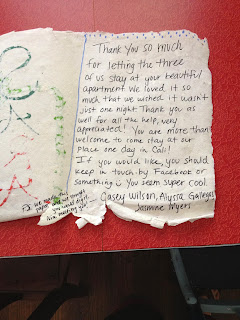 Thank you so much
for letting the three
of us stay at your beautiful
apartment. We loved it so
much, that we wished it wasn't
just one night. Thank you as
well for all the help, very
appreciated! You are more than
welcome to come stay at our
place one day in Cali!
If you would like, you should
keep in touch by Facebook or
something :) You seem super cool.
Casey Wilson, Alyssa Gallegos
Jasmine Myers
P.S. We made this
paper and we thought
you would dig it